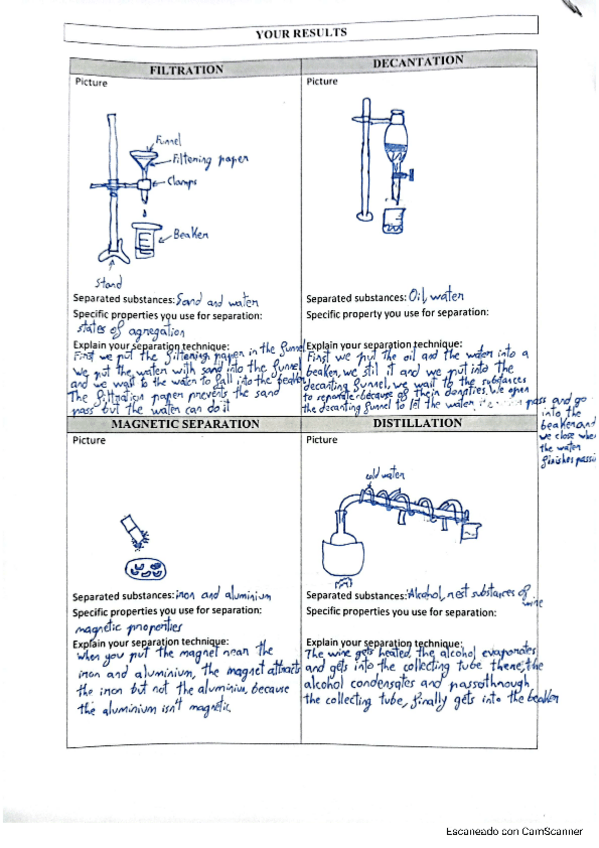 YOUR RESULTS
FILTRATION
Picture
Funnel
Filtening paper
Clamps
Beaker
Stand
Separated substances: Sand and water
Specific properties you use for separation:
states of agregation
Explain your separation technique:
First we put the filtening paper in the funnel
we put the water with sand into the funnel
and we wait to the water to fall into the beaker
The filtration paper prevents the sand
pass but the water can do it
DECANTATION
Picture
Separated substances: Oil, water
Specific property you use for separation:
Explain your separation technique:
First we put the oil and the water into a
beaker, we still it and we put into the
decanting funnel, we wait to the substances
to reparate because of their densities. We open
the decanting funnel to let the water pass and go
into the
beaker and
we close when
the water
finishes passi
MAGNETIC SEPARATION
Picture
Separated substances: iron and aluminium
Specific properties you use for separation:
magnetic properties
Explain your separation technique:
When you put the magnet near the
iron and aluminium, the magnet attracts
the iron but not the aluminium, because
the aluminium isn't magnetic.
DISTILLATION
Picture
cold water
Separated substances: Alcohol, rest substances of
wine
Specific properties you use for separation:
Explain your separation technique:
The wine gets heated, the alcohol evaporates
and gets into the collecting tube there, the
alcohol condensates and pass through
the collecting tube, finally gets into the beaker
Escaneado con CamScanner